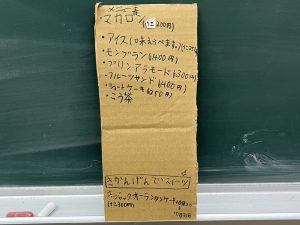 メニュー表
・マカロン(1こ200円)
・アイス(味えらべます)
・モンブラン(400円)
・プリンアラモード(300円)
・フルーツサンド(400円)
・ショートケーキ(350円)
・こう茶
きかんげんていスイーツ
・ジャックオーランタンケーキ
(1こ300円)